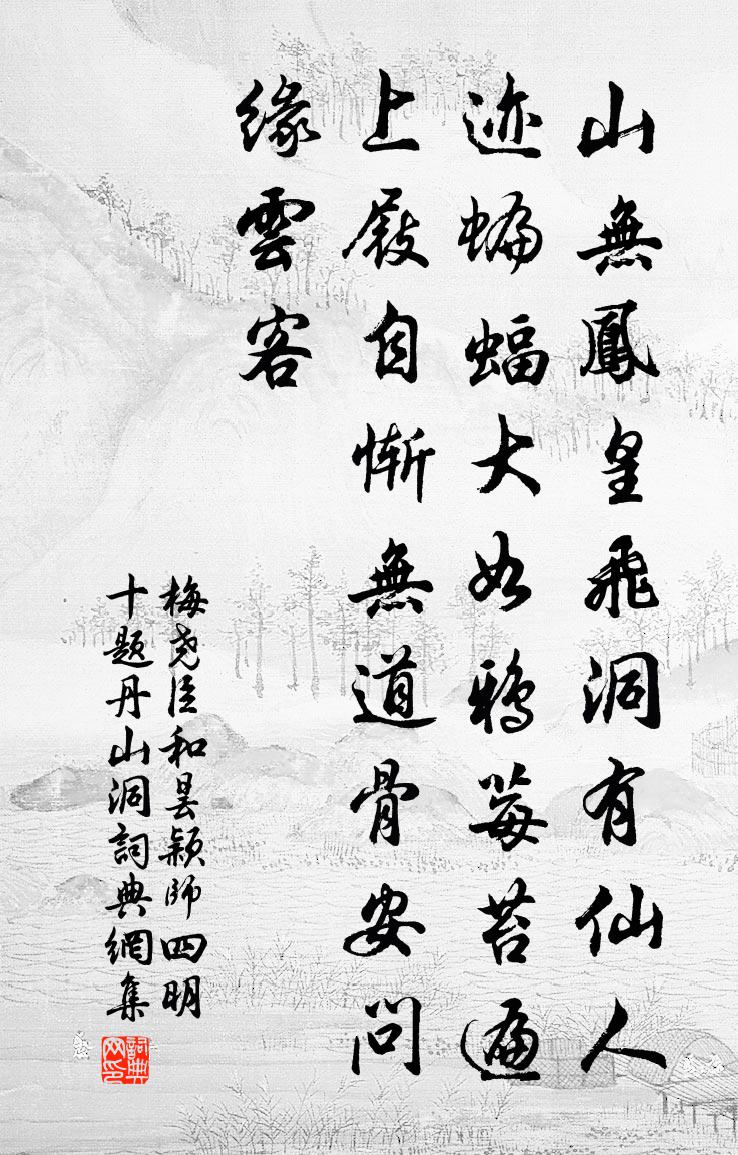 山無鳳皇飛洞有仙人
迹蝙蝠大如鴉莓苔遍
上屐自慚無道骨安問
緣雲客
梅尧臣和昙颖师四明
十题丹山洞詞典網集
詞典
网印